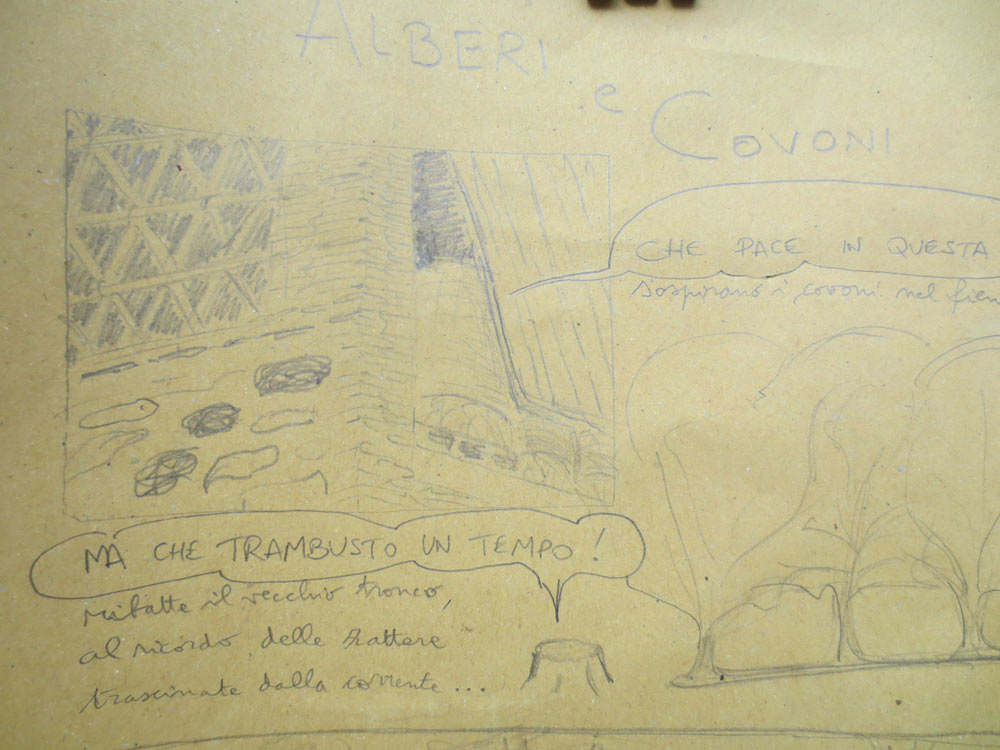 ALBERI
e
COVONI
CHE PACE IN QUESTA
sospirano i covoni nel fien
MA CHE TRAMBUSTO UN TEMPO!
ribatte il vecchio tronco,
al ricordo delle zattere
trascinate dalla corrente...